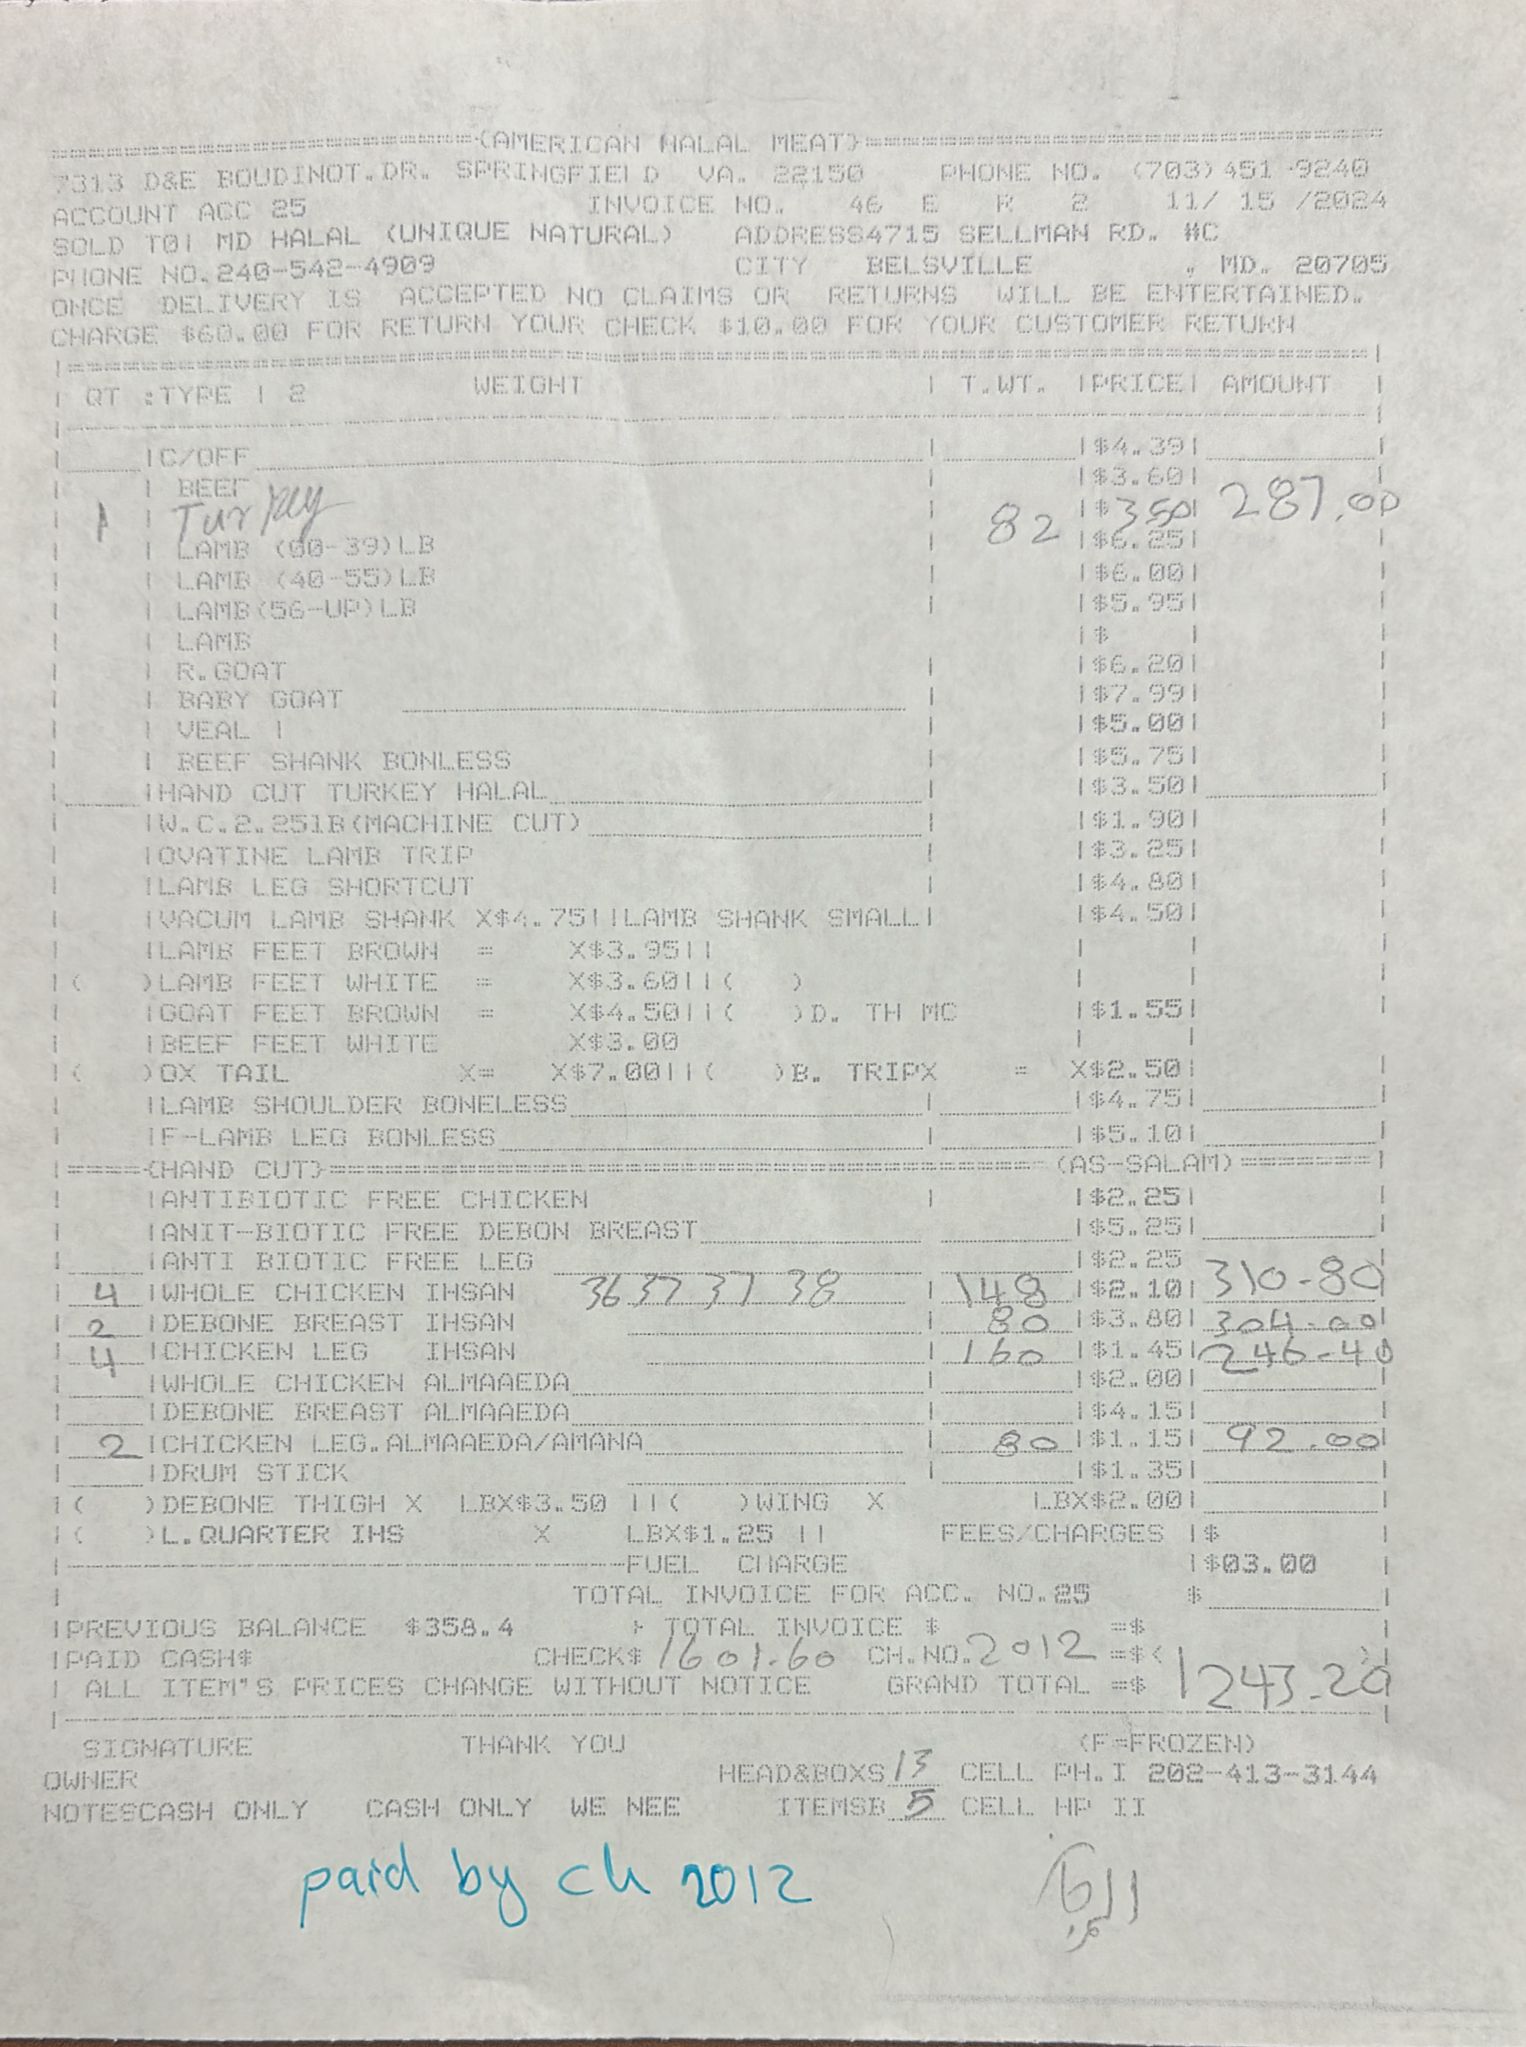 {AMERICAN HALAL MEAT}
7313 D&E BOUDINOT.DR. SPRINGFIELD VA. 22150 PHONE NO. (703)451-9240
ACCOUNT ACC 25 INVOICE NO. 46 E R 2 11/ 15 /2024
SOLD TO| MD HALAL (UNIQUE NATURAL) ADDRESS4715 SELLMAN RD. #C
PHONE NO.240-542-4909 CITY BELSVILLE , MD. 20705
ONCE DELIVERY IS ACCEPTED NO CLAIMS OR RETURNS WILL BE ENTERTAINED.
CHARGE $60.00 FOR RETURN YOUR CHECK $10.00 FOR YOUR CUSTOMER RETURN
QT :TYPE | 2 WEIGHT | T.WT. |PRICE| AMOUNT
|C/OFF |$4.39|
| BEEF |$3.60|
1 | Turkey 82 |$ 350| 287.00
| LAMB (00-39)LB |$6.25|
| LAMB (40-55)LB |$6.00|
| LAMB(56-UP)LB |$5.95|
| LAMB |$ |
| R.GOAT |$6.20|
| BABY GOAT |$7.99|
| VEAL | |$5.00|
| BEEF SHANK BONLESS |$5.75|
|HAND CUT TURKEY HALAL |$3.50|
|W.C.2.25LB(MACHINE CUT) |$1.90|
|OVATINE LAMB TRIP |$3.25|
|LAMB LEG SHORTCUT |$4.80|
|VACUM LAMB SHANK X$4.75||LAMB SHANK SMALL| |$4.50|
|LAMB FEET BROWN = X$3.95||
|( )LAMB FEET WHITE = X$3.60||( )
|GOAT FEET BROWN = X$4.50||( )D. TH MC |$1.55|
|BEEF FEET WHITE X$3.00
|( )OX TAIL X= X$7.00||( )B. TRIPX = X$2.50|
|LAMB SHOULDER BONELESS |$4.75|
|F-LAMB LEG BONLESS |$5.10|
|===={HAND CUT}====(AS-SALAM)====|
|ANTIBIOTIC FREE CHICKEN |$2.25|
|ANIT-BIOTIC FREE DEBON BREAST |$5.25|
|ANTI BIOTIC FREE LEG |$2.25
4 |WHOLE CHICKEN IHSAN 36 37 37 38 | 148 |$2.10| 310-80
2 |DEBONE BREAST IHSAN 80 |$3.80| 304-00
4 |CHICKEN LEG IHSAN 160 |$1.45| 246-40
|WHOLE CHICKEN ALMAAEDA |$2.00|
|DEBONE BREAST ALMAAEDA |$4.15|
2 |CHICKEN LEG.ALMAAEDA/AMANA 80 |$1.15| 92.00
|DRUM STICK |$1.35|
|( )DEBONE THIGH X LBX$3.50 ||( )WING X LBX$2.00|
|( )L.QUARTER IHS X LBX$1.25 || FEES/CHARGES |$
FUEL CHARGE |$03.00
TOTAL INVOICE FOR ACC. NO.25 $
|PREVIOUS BALANCE $358.4 + TOTAL INVOICE $ =$
|PAID CASH$ CHECK$ 1601.60 CH.NO.2012 =$( )
| ALL ITEM'S PRICES CHANGE WITHOUT NOTICE GRAND TOTAL =$ 1243-20
SIGNATURE THANK YOU (F=FROZEN)
OWNER HEAD&BOXS 13 CELL PH.I 202-413-3144
NOTESCASH ONLY CASH ONLY WE NEE ITEMSB 5 CELL HP II
paid by ch 2012